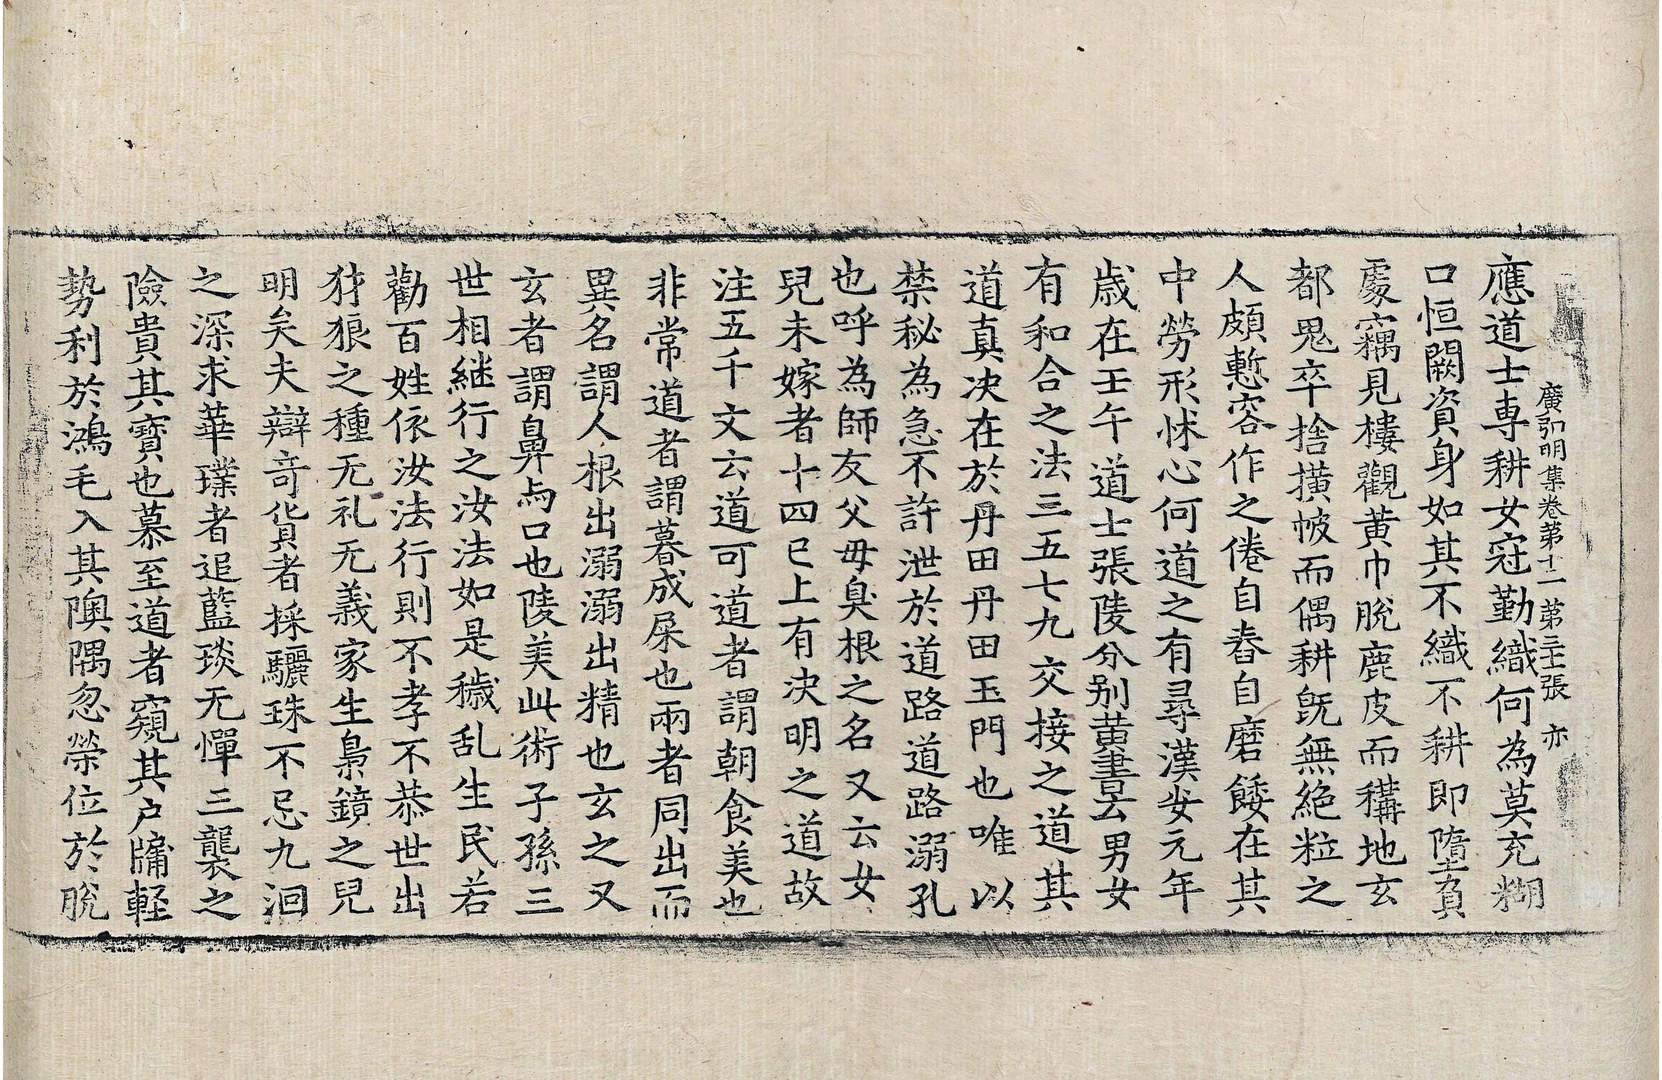 廣弘明集卷第十一 第三十二張 亦
應道士専耕女冠勤織何為莫充糊
口恒闕資身如其不織不耕即墮負
處竊見樓觀黄巾脫鹿皮而構地玄
都鬼卒捨横帔而偶耕旣無絶粒之
人頗慙容作之倦自舂自磨餧在其
中勞形怵心何道之有尋漢安元年
歳在壬午道士張陵分别黄書云男女
有和合之法三五七九交接之道其
道真决在於丹田丹田玉門也唯以
禁秘為急不許泄於道路道路溺孔
也呼為師友父母臭根之名又云女
兒未嫁者十四已上有决明之道故
注五千文云道可道者謂朝食美也
非常道者謂暮成屎也兩者同出而
異名謂人根出溺溺出精也玄之又
玄者謂鼻与口也陵美此術子孫三
世相継行之汝法如是穢乱生民若
勸百姓依汝法行則不孝不恭世出
犲狼之種无礼无義家生梟鏡之兒
明矣夫辯竒貨者採驪珠不忌九洄
之深求華璞者追藍琰无憚三襲之
險貴其寶也慕至道者窺其户牖軽
勢利於鴻毛入其隩隅忽榮位於脫